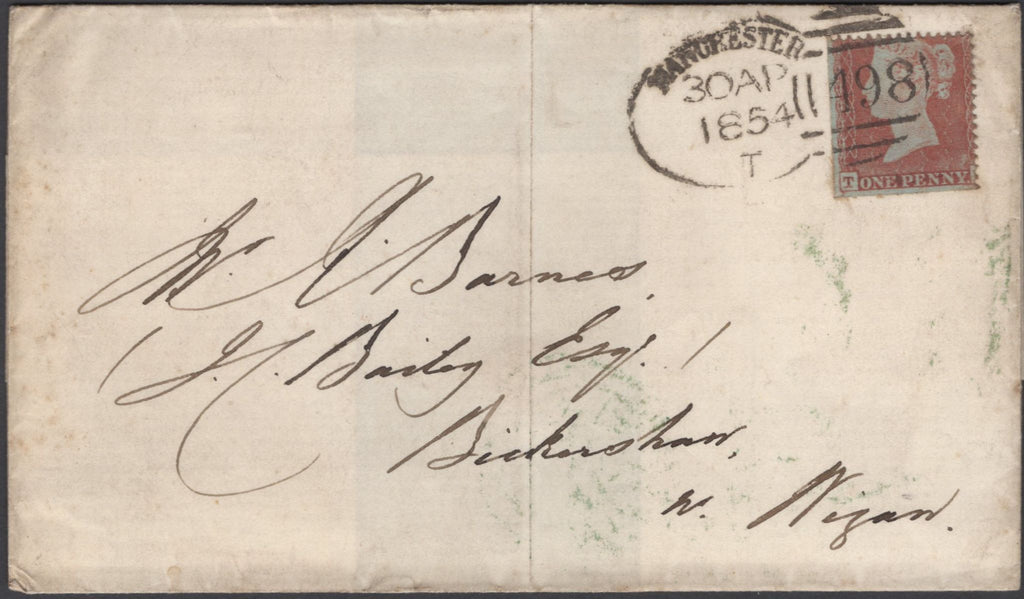 MANCHESTER
30AP
1854
T
498
T ONE PENNY.
Mr. J. Barnes,
(J. C. Bailey Esqr.)
Bickershaw,
nr. Wigan.